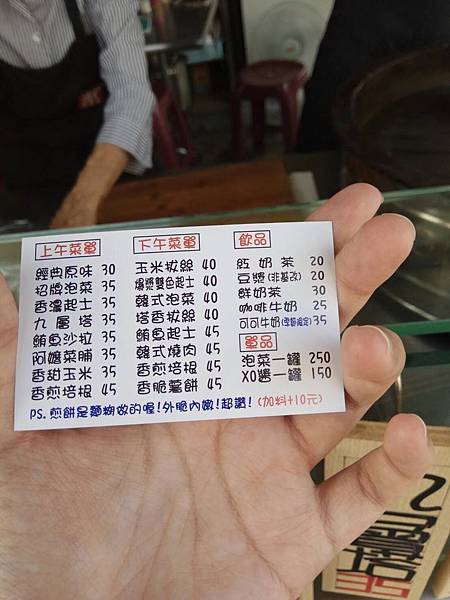 上午菜單
經典原味 30
招牌泡菜 35
香濃起士 35
九層塔 35
鮪魚沙拉 35
阿嬤菜脯 35
香甜玉米 35
香煎培根 45
下午菜單
玉米拔絲 40
爆漿雙色起士 40
韓式泡菜 40
塔香拔絲 40
鮪魚起士 45
韓式燒肉 45
香煎培根 45
香脆薯餅 45
飲品
紅奶茶 20
豆漿(非基改) 20
鮮奶茶 30
咖啡牛奶 25
可可牛奶 35
單品
泡菜一罐 250
XO醬一罐 150
PS.煎餅是麵糊做的喔!外脆內嫩!超讚!(加料+10元)
九層塔
35